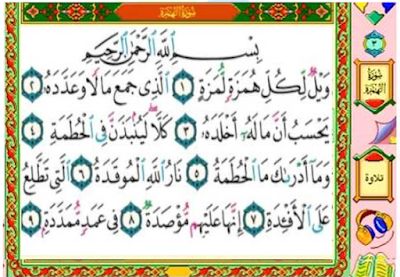 سورة الهمزة
بِسْمِ اللَّهِ الرَّحْمَٰنِ الرَّحِيمِ
وَيْلٌ لِكُلِّ هُمَزَةٍ لُمَزَةٍ ١ الَّذِي جَمَعَ مَالًا وَعَدَّدَهُ ٢
يَحْسَبُ أَنَّ مَالَهُ أَخْلَدَهُ ٣ كَلَّا لَيُنْبَذَنَّ فِي الْحُطَمَةِ ٤
وَمَا أَدْرَاكَ مَا الْحُطَمَةُ ٥ نَارُ اللَّهِ الْمُوقَدَةُ ٦ الَّتِي تَطَّلِعُ
عَلَى الْأَفْئِدَةِ ٧ إِنَّهَا عَلَيْهِمْ مُؤْصَدَةٌ ٨ فِي عَمَدٍ مُمَدَّدَةٍ ٩
٢
سورة
الهمزة
تلاوة